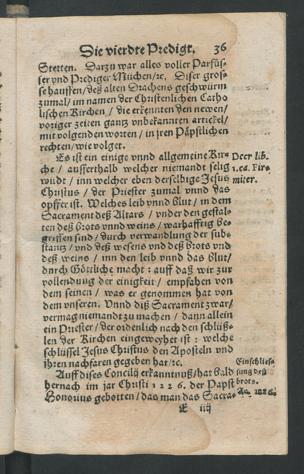 Die vierdte Predigt. 36
Stetten. Darzu war alles voller Parfüs-
ser vnd Prediger München/ꝛc. Diser gros-
se hauffen/deß alten Drachens geschwürm
zumal/im namen der Christenlichen Catho
lischen Kirchen/die erkennten den newen/
voriger zeiten gantz vnbekannten artickel/
mit volgenden worten/in jren Päpstlichen
rechten/wie volget.
Es ist ein einige vnnd allgemeine Kir-
che/ausserhalb welcher niemandt selig
würdt/inn welcher eben derselbige Jesus
Christus/der Priester zumal vnnd das
opffer ist. Welches leib vnnd blut/in dem
Sacrament deß Altars/vnder den gestal-
ten deß brots vnnd weins/warhafftig be-
griffen sind/durch verwandlung der sub-
stantz/vnd deß wesens vnd deß brots vnd
deß weins/inn den leib vnnd das blut/
durch Göttliche macht: auff daß wir zur
vollendung der einigkeit/empfahen von
dem seinen/was er genommen hat von
dem vnseren. Vnnd diß Sacrament zwar/
vermag niemandt zu machen/dann allein
ein Priester/der ordenlich nach den schlüs-
len der Kirchen eingeweyhet ist: welche
schlüssel Jesus Christus den Aposteln vnd
jhren nachfaren gegeben hat/ꝛc.
Auff dises Concilij erkanntnuß/hat bald
hernach im jar Christi 1226. der Papst
Honorius gebotten/das man das Sacra-
E iiij
Decr lib.
1. ca. Fir-
miter.
Einschlies-
sung deß
brots.
An. 1226.